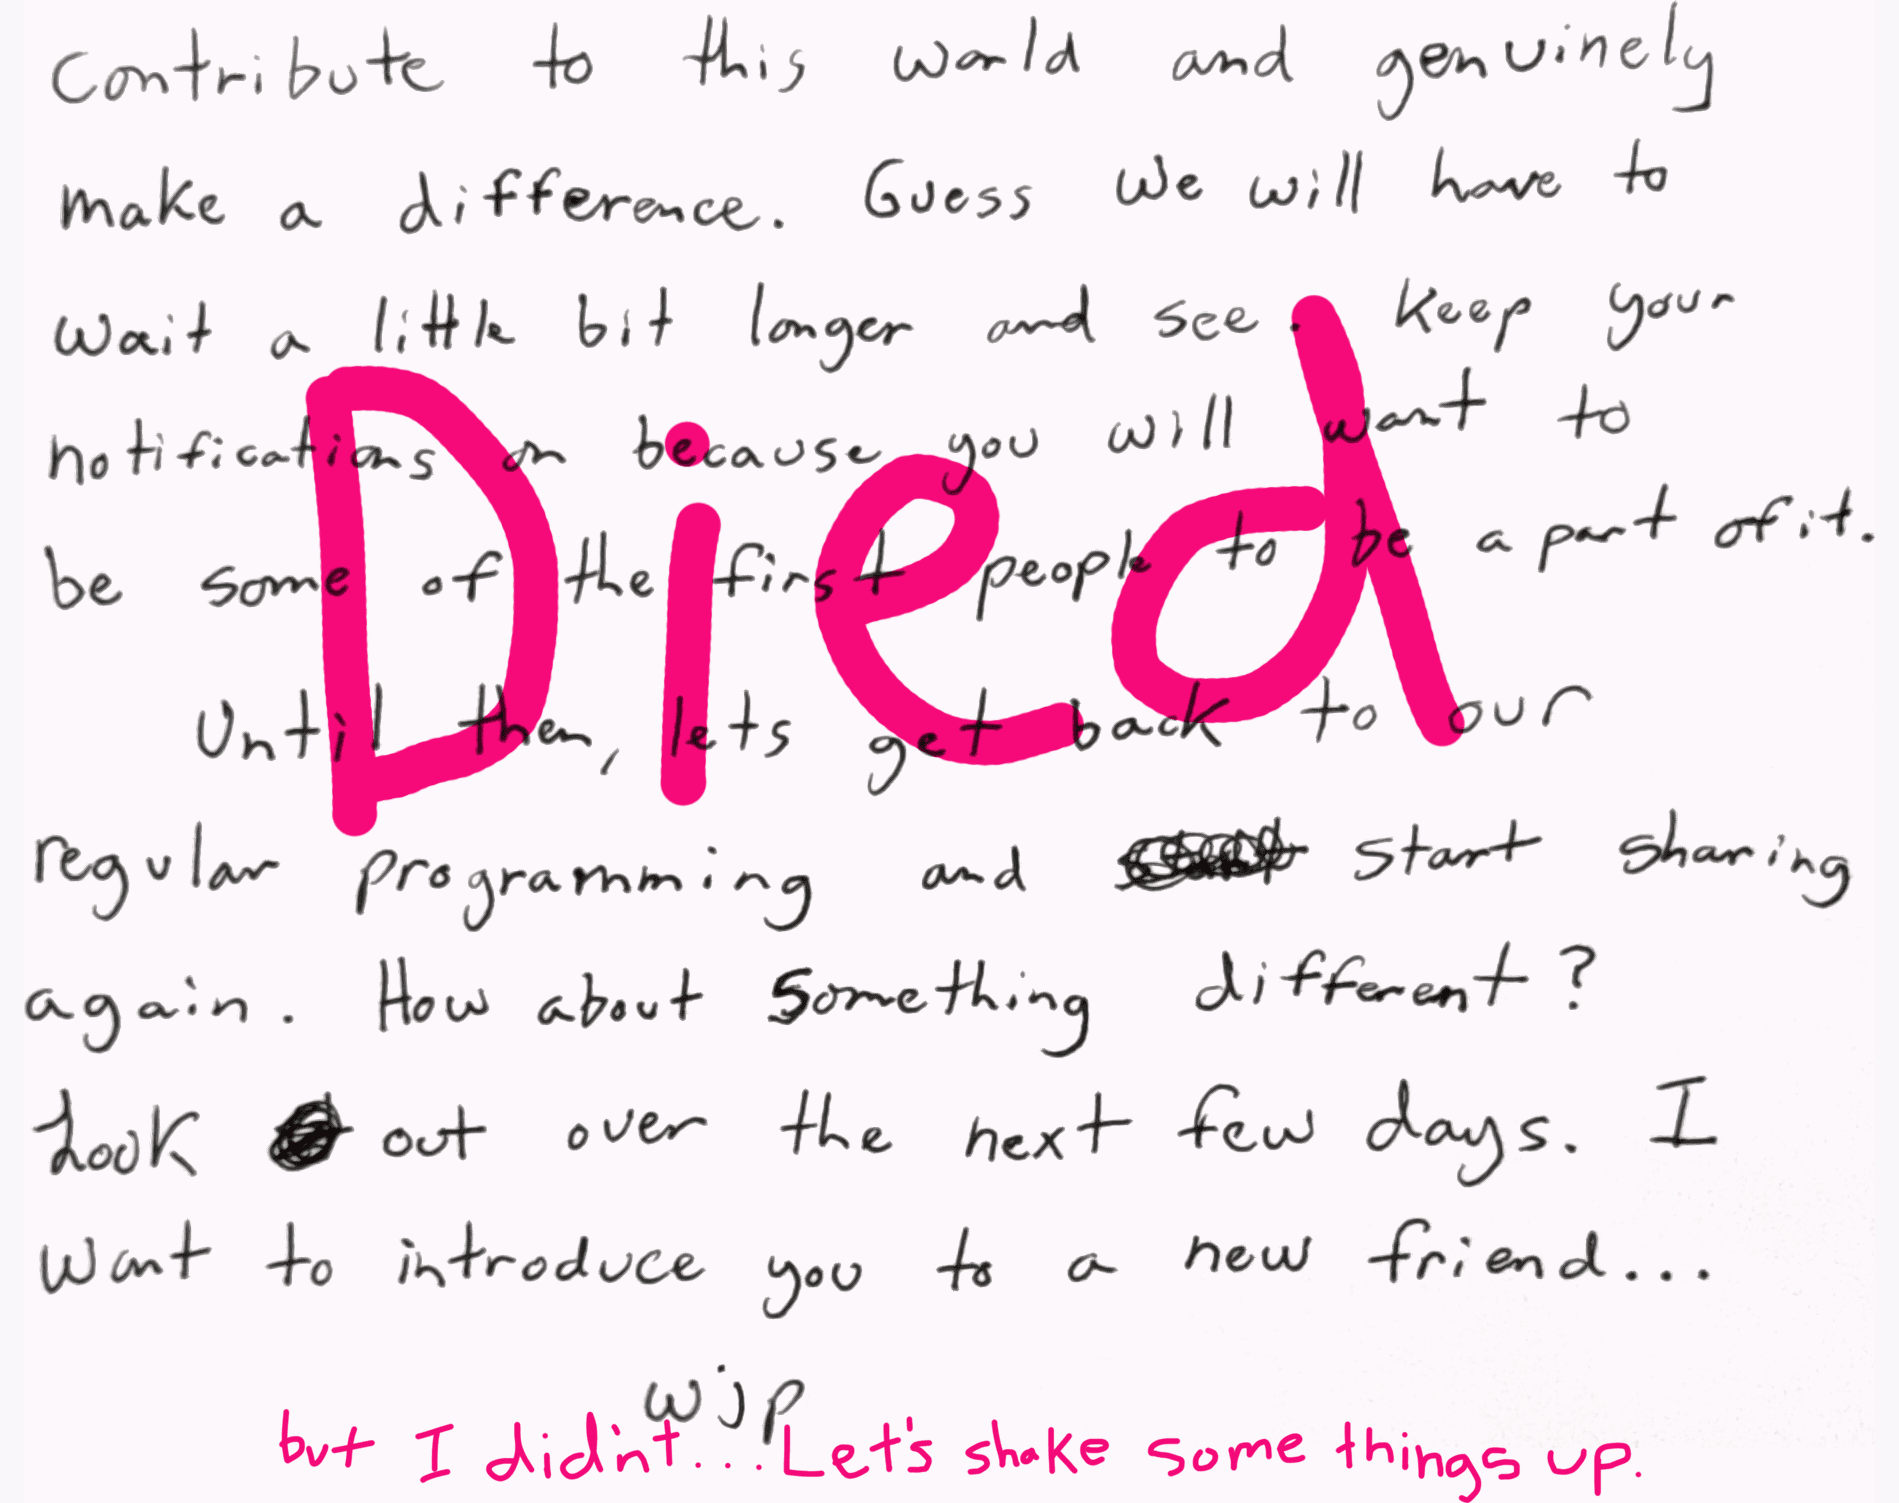 contribute to this world and genuinely
make a difference. Guess we will have to
wait a little bit longer and see. Keep your
notifications on because you will want to
be some of the first people to be a part of it.
Died
Until then, lets get back to our
regular programming and start sharing
again. How about something different?
Look out over the next few days. I
want to introduce you to a new friend...
wjp
but I didn't... Let's shake some things up.